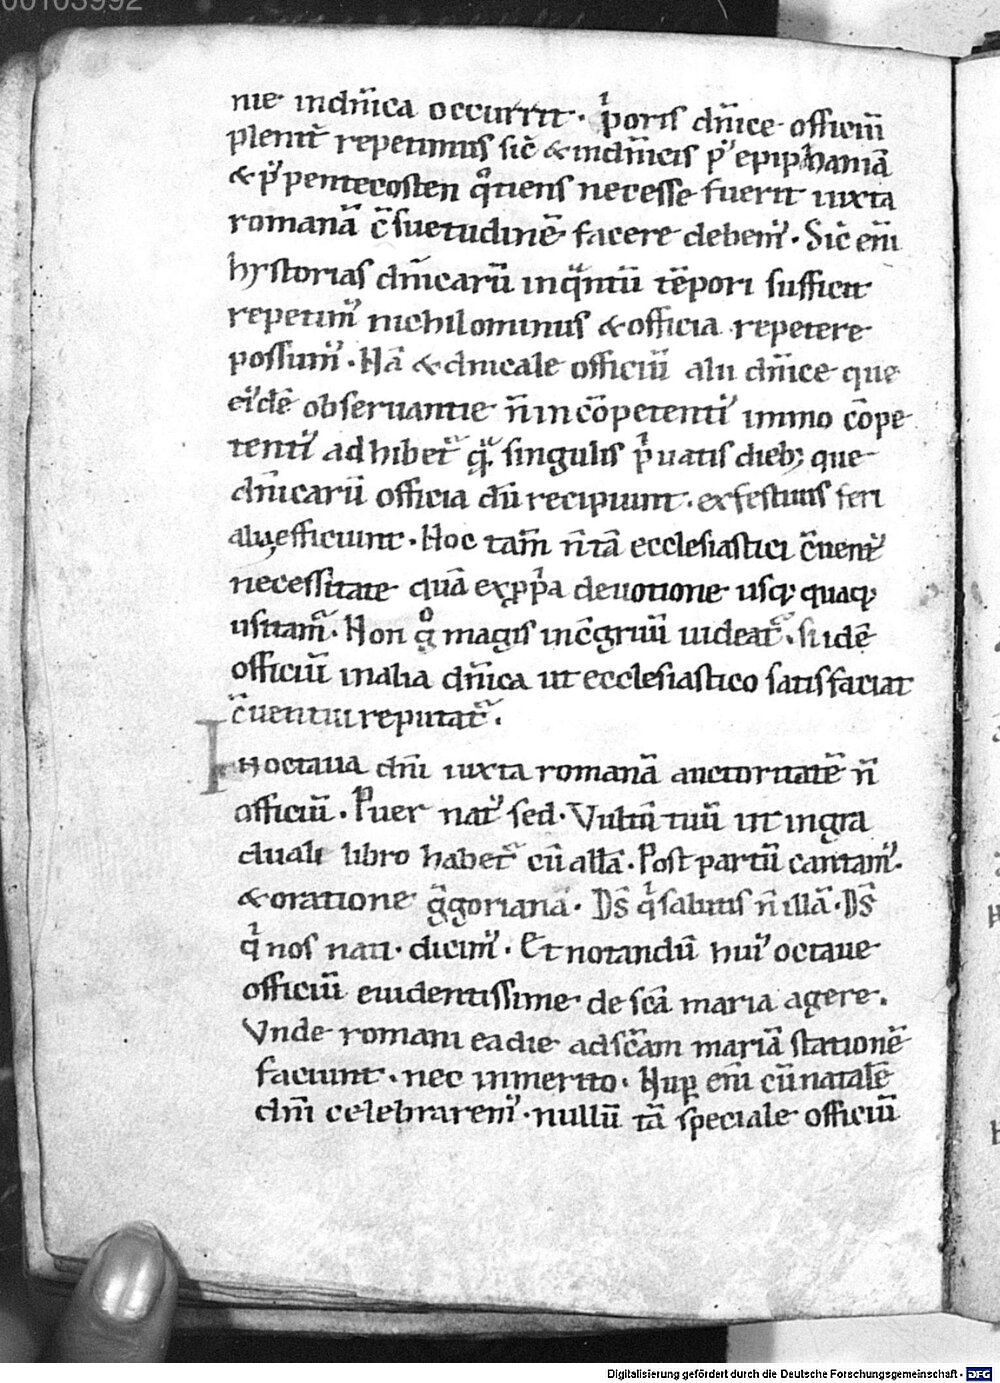 00103992
nie indn̄ica occurrit · p̍oris dn̄ice officiū
plenit̄ repetimus sic̄ & indn̄icis pꝰ epiphaniā
& pꝰ pentecosten qͦtiens necesse fuerit iuxta
romanā c̄suetudinē facere debemꝰ · Sic̄ eni̅
hystorias dn̄icarū inqͣntū tēpori sufficit
repetimꝰ nichilominus & officia repetere
possumꝰ · Nā & dnicale officiū alii dn̄ice que
eiꝰdē obseruantie n̄ incōpetentiꝰ immo cōpe
tentiꝰ adhibet᷑ qͣ singulis p̍uatis dieb; que
dn̄icarū officia dū recipiunt · ex festiuis feri
ales efficiunt · Hoc tam̄ n̄ tā ecclesiastici c̄uentꝰ
necessitate quā ex ꝓp̍a deuotione usq; quaq;
usitam᷑ · Non gͦ magis inc̄gruū uideat᷑ · si idē
officiū in alia dn̄ica ut ecclesiastico satisfaciat
c̄uentui reputat᷑ ·
IN octaua dn̄i iuxta romanā auctoritatē n̄
officiū · Puer natꝰ sed · Vultū tuū ut in gra
duali libro habet᷑ cū allā · Post partū cantamꝰ ·
& oratione g̅goriana̅ · Ds̄ q̍ salutis n̄ illā · Ds̄
q̍ nos nati · dicimꝰ · Et notandū huiꝰ octaue
officiū euidentissime de scā maria agere ·
Vnde romani ea die ad scām mariā stationē
faciunt · nec inmerito · Nuꝑ eni̅ cū natalē
dn̄i celebraremꝰ · nullū tā speciale officiū
Digitalisierung gefördert durch die Deutsche Forschungsgemeinschaft - DFG